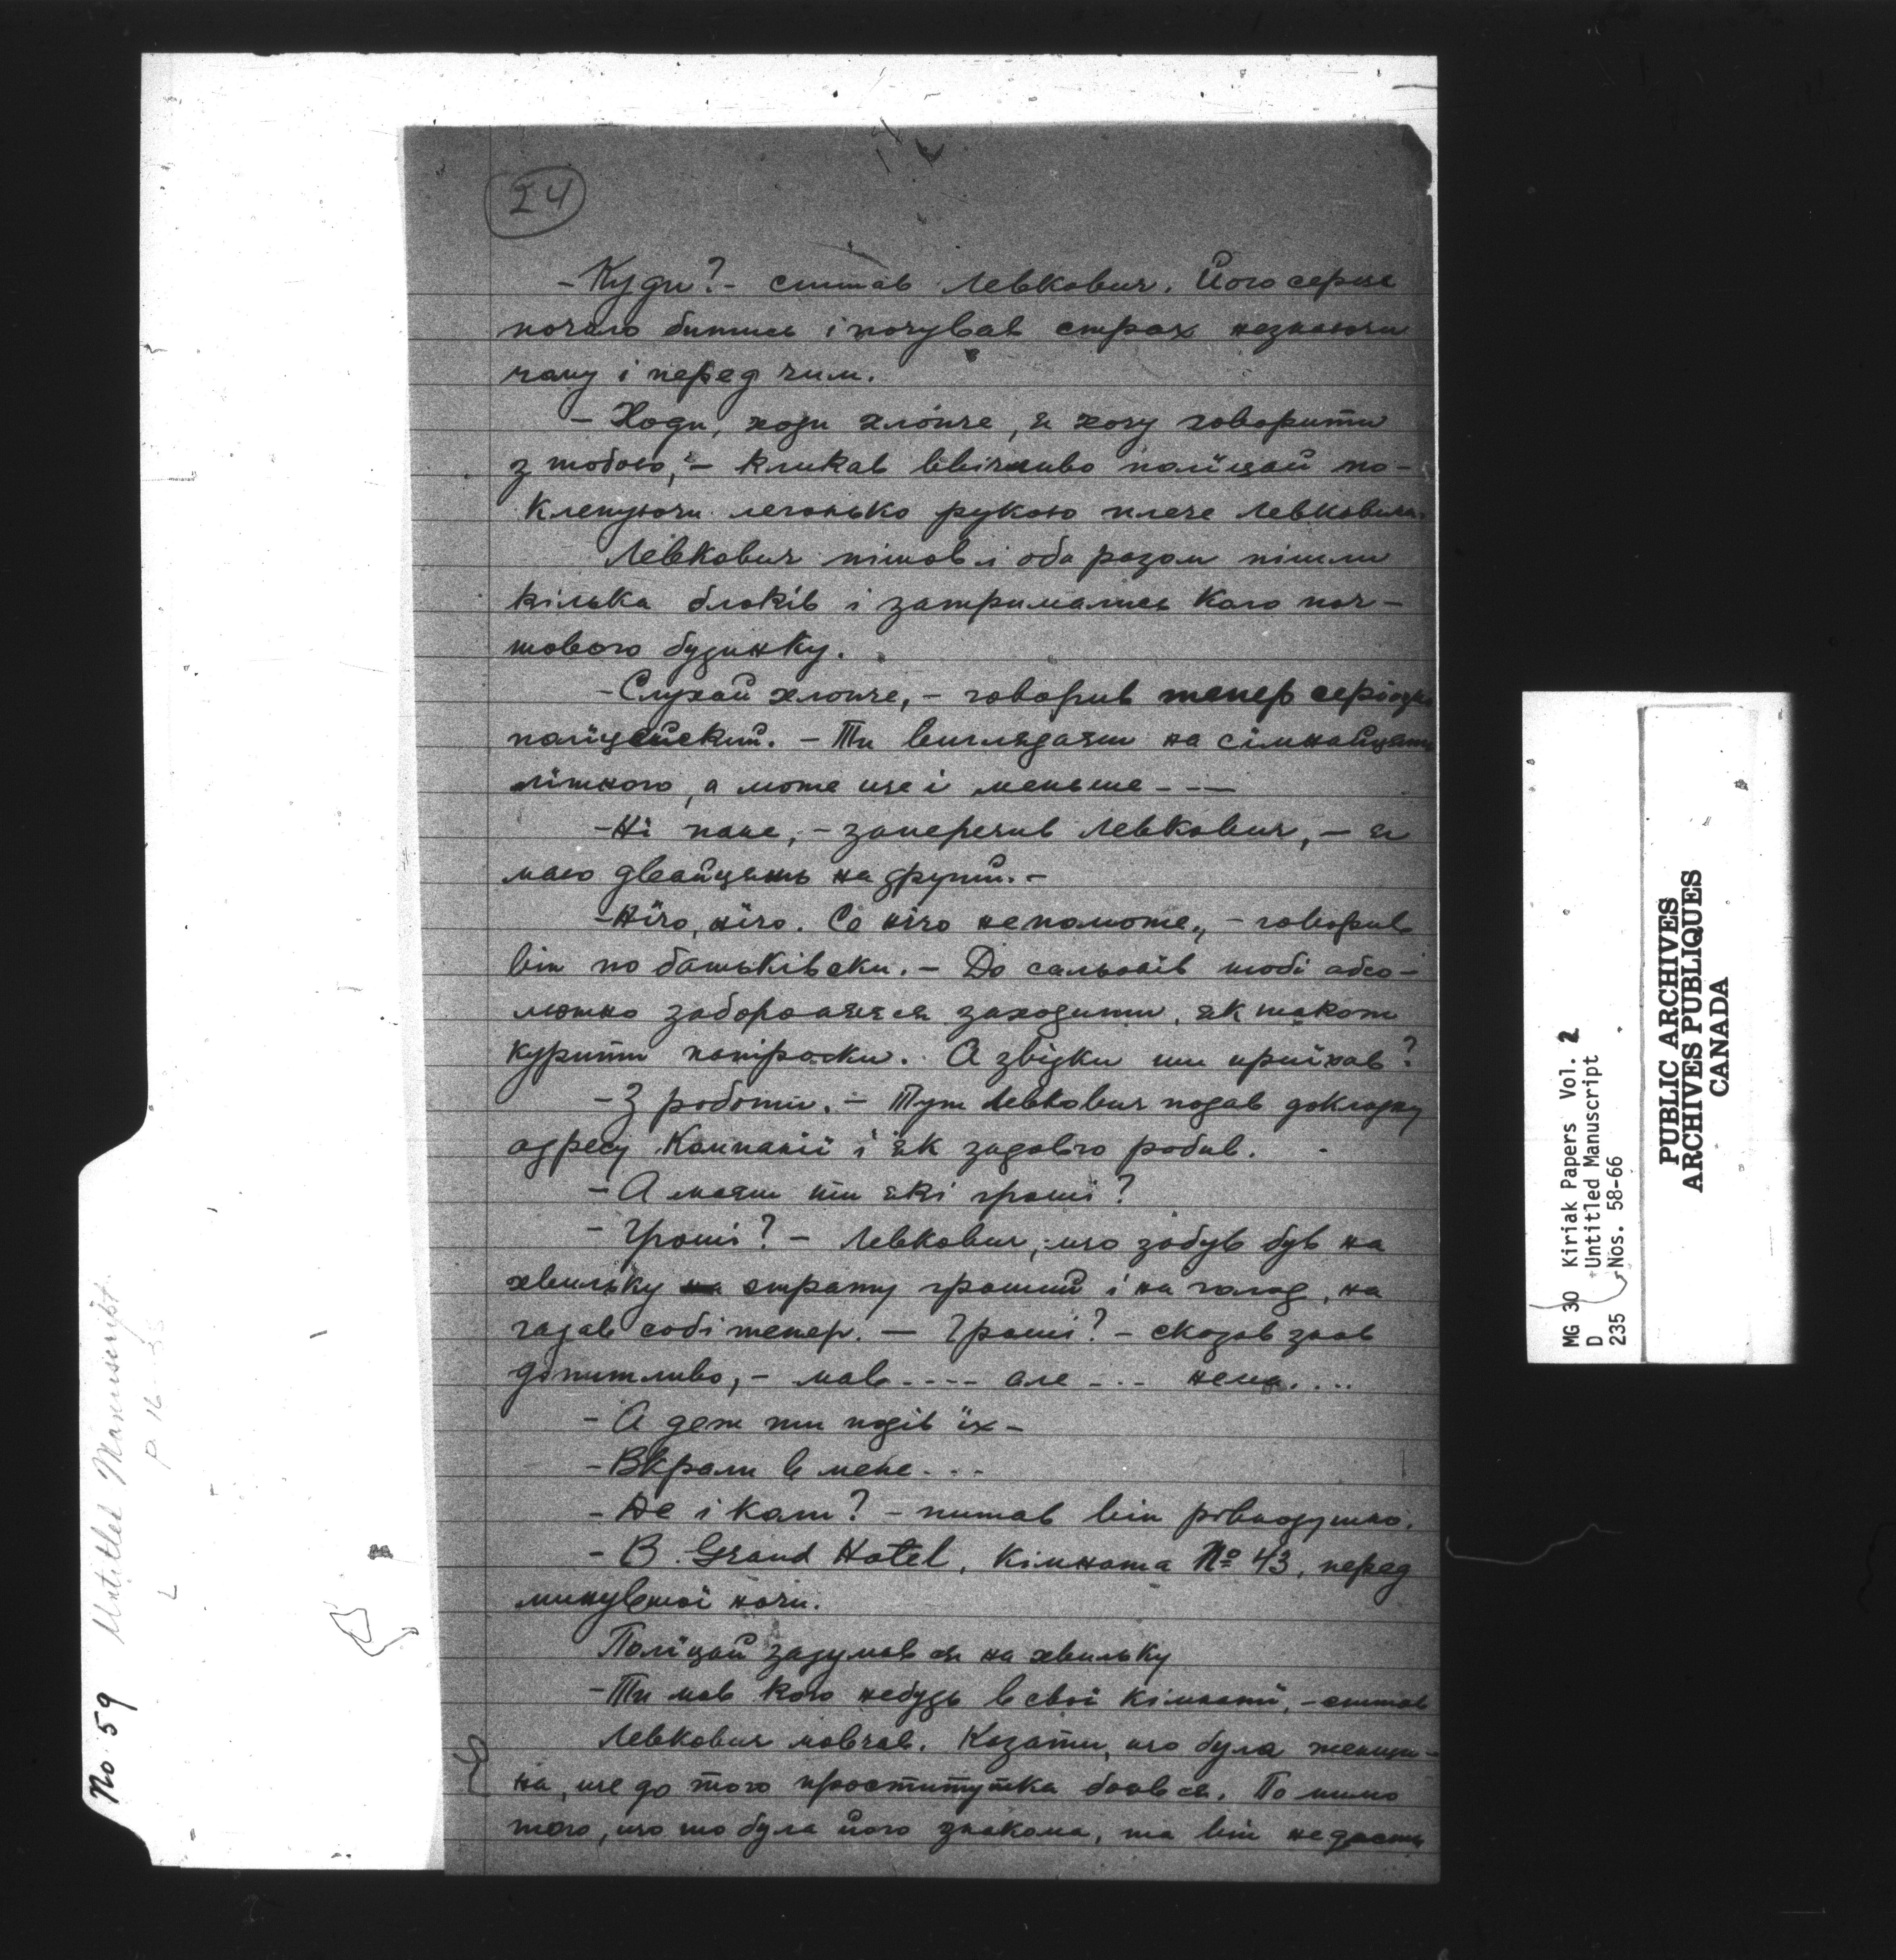 24
- Куди? - спитав Левкович. Його серце
почало битись і почував страх незнаючи
чому і перед чим.
- Ходи, ходи хлопче, я хочу говорити
з тобою, - кликав ввічливо поліцай по-
клепуючи легонько рукою плече Левковича.
Левкович пішов і оба разом пішли
кілька блоків і затримались коло поч-
тового будинку.
- Слухай хлопче, - говорив тепер серіозно
поліцейский. - Ти виглядаєш на сімнайцять
літного, а може ще і меньше - - -
- Ні пане, - заперечив Левкович, - я
маю двайцять на другий. -
- Нічо, нічо. Се нічо непоможе, - говорив
він по батьківски. - До сальонів тобі абсо-
лютно забороняєся заходити, як також
курити папіроски. А звідки ти приїхав?
- З роботи. - Тут Левкович подав докладну
адресу компанії і як задовго робив.
- А маєш ти які гроші?
- Гроші? - Левкович, що забув був на
хвильку на страту грошей і на голод, на
гадав собі тепер. - Гроші? - сказав знов
допитливо, - мав - - - - але - - - нема. . . .
- А деж ти подів їх -
- Вкрали в мене - - -
- Де і коли? - питав він рівнодушно.
- В Grand Hotel, кімната № 43, перед
минувшої ночи.
Поліцай задумався на хвильку
- Ти мав кого небудь в свої кімнаті, - спитав
Левкович мовчав. Казати, що була женщи-
на, ще до того проститутка боявся. Помимо
того, що то була його знакома, та він
No 59 Untitled Manuscript
P. 16-35
MG 30 Kiriak Papers Vol. 2
D Untitled Manuscript
235 Nos. 58-66
PUBLIC ARCHIVES
ARCHIVES PUBLIQUES
CANADA